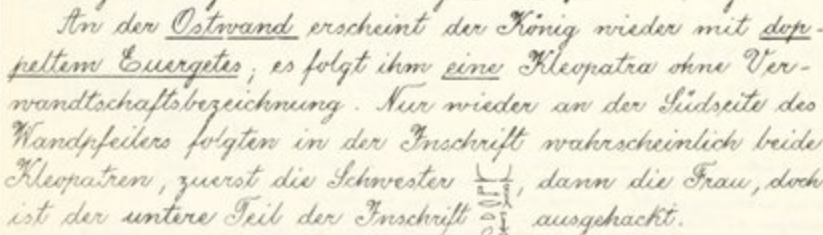 An der Ostwand erscheint der König wieder mit dop-
peltem Euergetes; es folgt ihm eine Kleopatra ohne Ver-
wandtschaftsbezeichnung. Nur wieder an der Südseite des
Wandpfeilers folgten in der Inschrift wahrscheinlich beide
Kleopatren, zuerst die Schwester , dann die Frau, doch
ist der untere Teil der Inschrift ausgehackt.